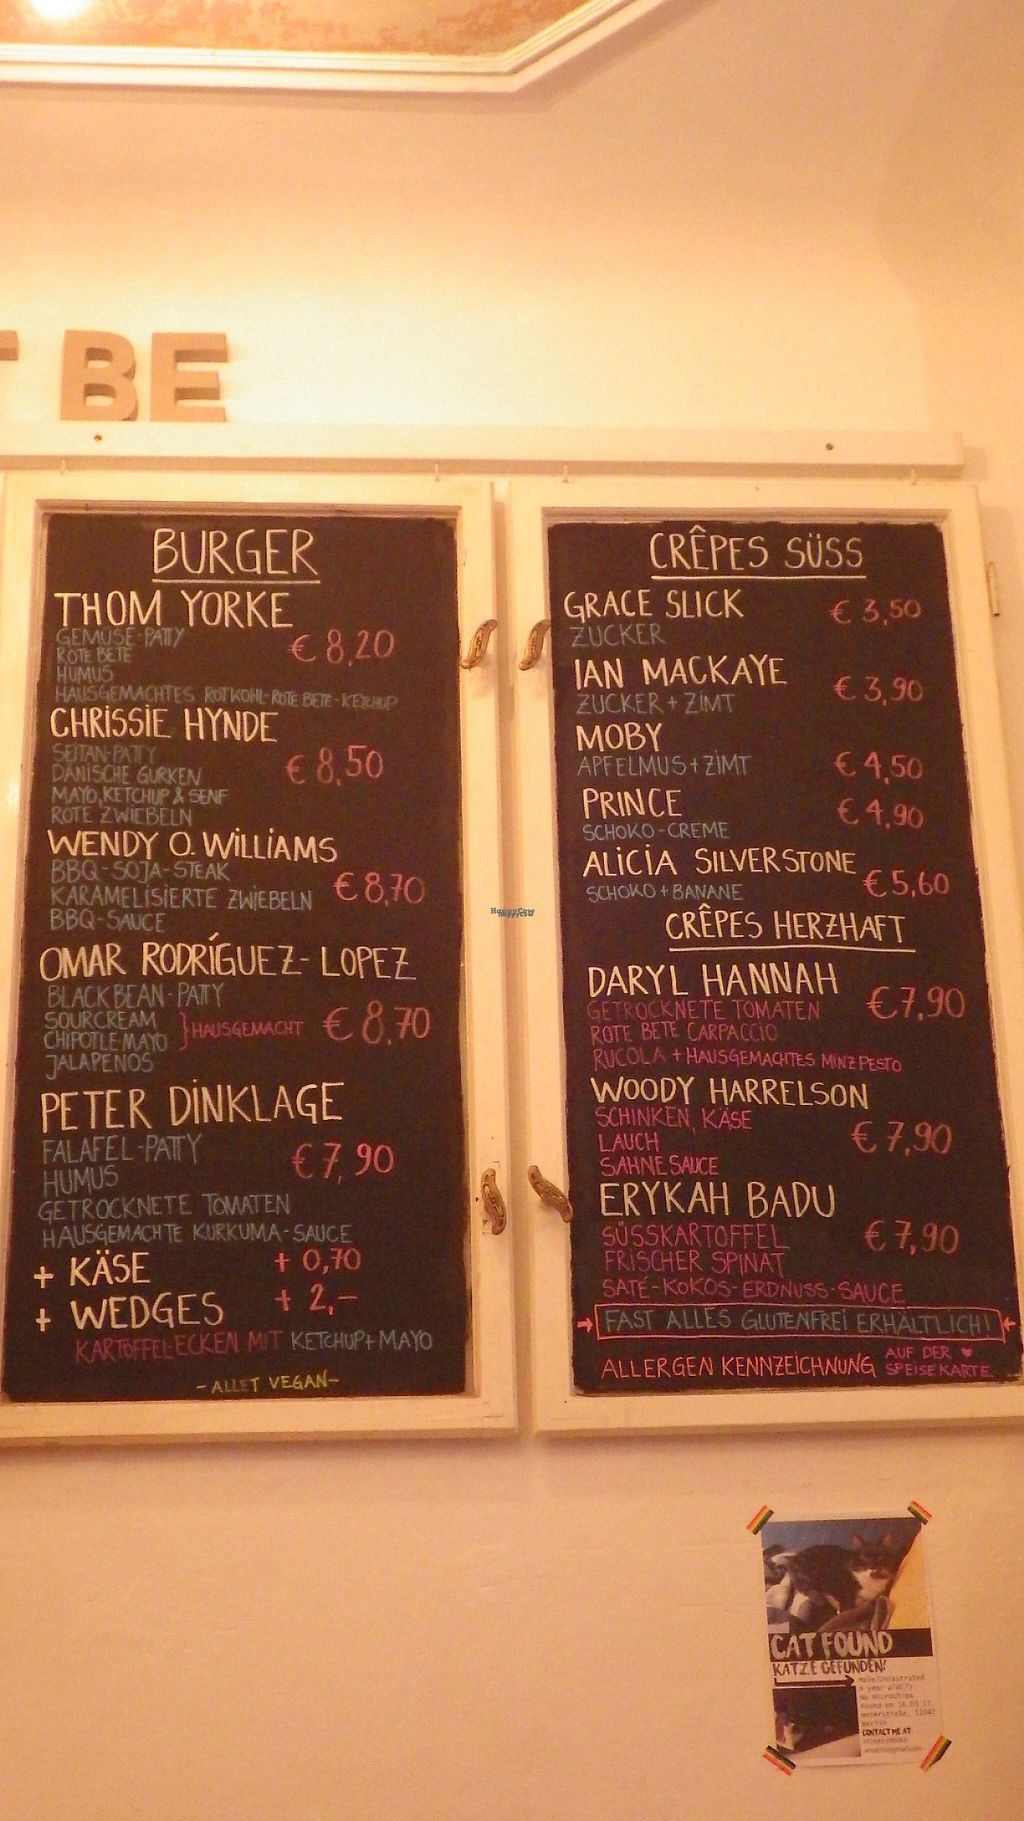 BE
BURGER
THOM YORKE
GEMÜSE-PATTY
ROTE BETE
HUMUS
HAUSGEMACHTES ROTKOHL-ROTE BETE-KETCHUP
€ 8,20
CHRISSIE HYNDE
SEITAN-PATTY
DÄNISCHE GURKEN
MAYO, KETCHUP & SENF
ROTE ZWIEBELN
€ 8,50
WENDY O. WILLIAMS
BBQ-SOJA-STEAK
KARAMELISIERTE ZWIEBELN
BBQ-SAUCE
€ 8,70
OMAR RODRÍGUEZ-LOPEZ
BLACKBEAN-PATTY
SOURCREAM
CHIPOTLE MAYO
} HAUSGEMACHT
JALAPENOS
€ 8,70
PETER DINKLAGE
FALAFEL-PATTY
HUMUS
GETROCKNETE TOMATEN
HAUSGEMACHTE KURKUMA-SAUCE
€ 7,90
+ KÄSE + 0,70
+ WEDGES + 2,-
KARTOFFELECKEN MIT KETCHUP+MAYO
- ALLET VEGAN -
CRÊPES SÜSS
GRACE SLICK € 3,50
ZUCKER
IAN MACKAYE € 3,90
ZUCKER + ZIMT
MOBY € 4,50
APFELMUS + ZIMT
PRINCE € 4,90
SCHOKO-CREME
ALICIA SILVERSTONE € 5,60
SCHOKO + BANANE
CRÊPES HERZHAFT
DARYL HANNAH € 7,90
GETROCKNETE TOMATEN
ROTE BETE CARPACCIO
RUCOLA + HAUSGEMACHTES MINZPESTO
WOODY HARRELSON € 7,90
SCHINKEN, KÄSE
LAUCH
SAHNESAUCE
ERYKAH BADU € 7,90
SÜSSKARTOFFEL
FRISCHER SPINAT
SATÉ-KOKOS-ERDNUSS-SAUCE
FAST ALLES GLUTENFREI ERHÄLTLICH!
ALLERGEN KENNZEICHNUNG AUF DER
SPEISEKARTE
HappyCow
CAT FOUND
KATZE GEFUNDEN!
Male/Uncastrated
A year old(?)
No Microchips
Found on 16.03.17
Weserstraße, 12047
Berlin
CONTACT ME AT